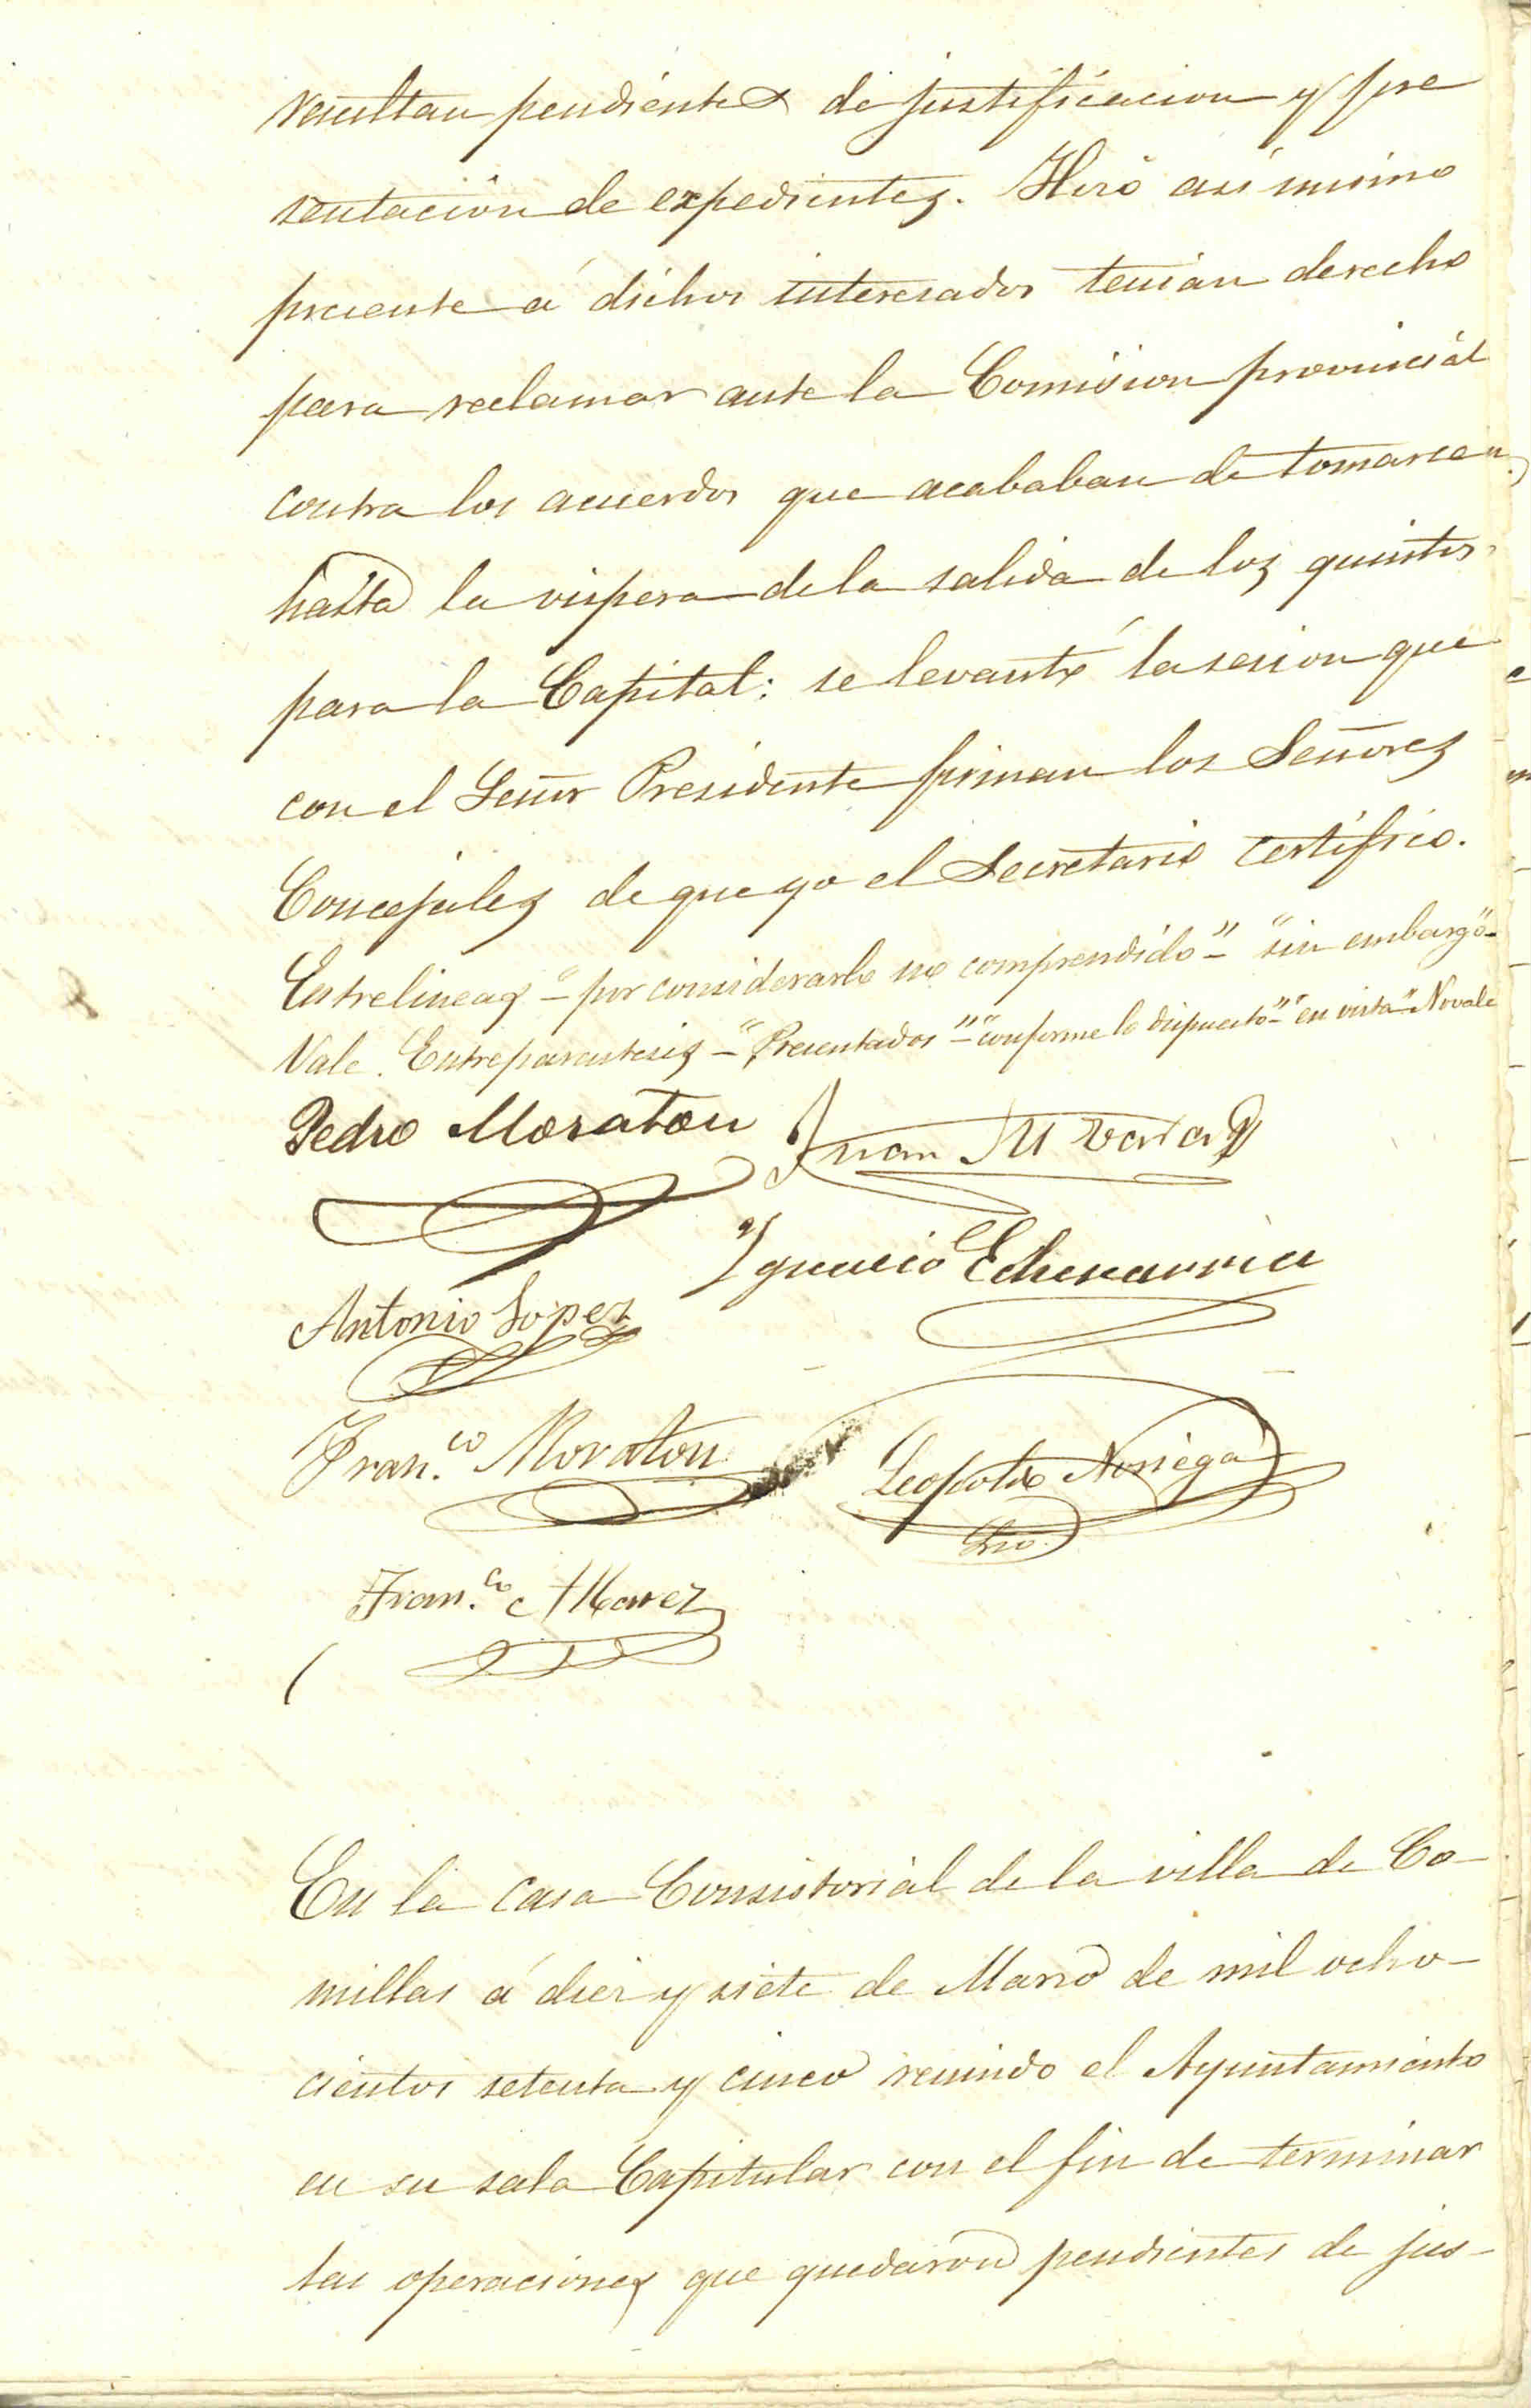 resultan pendientes de justificacion y pre
sentacion de expedientes. Hizo asi mismo
presente á dichos interesados tenian derecho
para reclamar ante la Comision provincial
contra los acuerdos que acababan de tomarse
hasta la vispera de la salida de los quintos
para la Capital: se levantó la sesion que
con el Señor Presidente firman los Señores
Concejales de que yo el Secretario certifico.
Entrelineas - "por considerarlo no comprendido" - "sin embargo" -
Vale. Entreparentesis - "Presentados" - "conforme lo dispuesto" - "en vista" No vale
Pedro Moraton Juan M
Ygnacio Echevarria
Antonio Lopez
Fran.co Moraton Leopoldo Noriega
Srio
Fran.co Alvarez
En la casa Consistorial de la villa de Co-
millas á diez y siete de Marzo de mil ocho-
cientos setenta y cinco reunido el Ayuntamiento
en su sala Capitular con el fin de terminar
las operaciones que quedaron pendientes de jus-